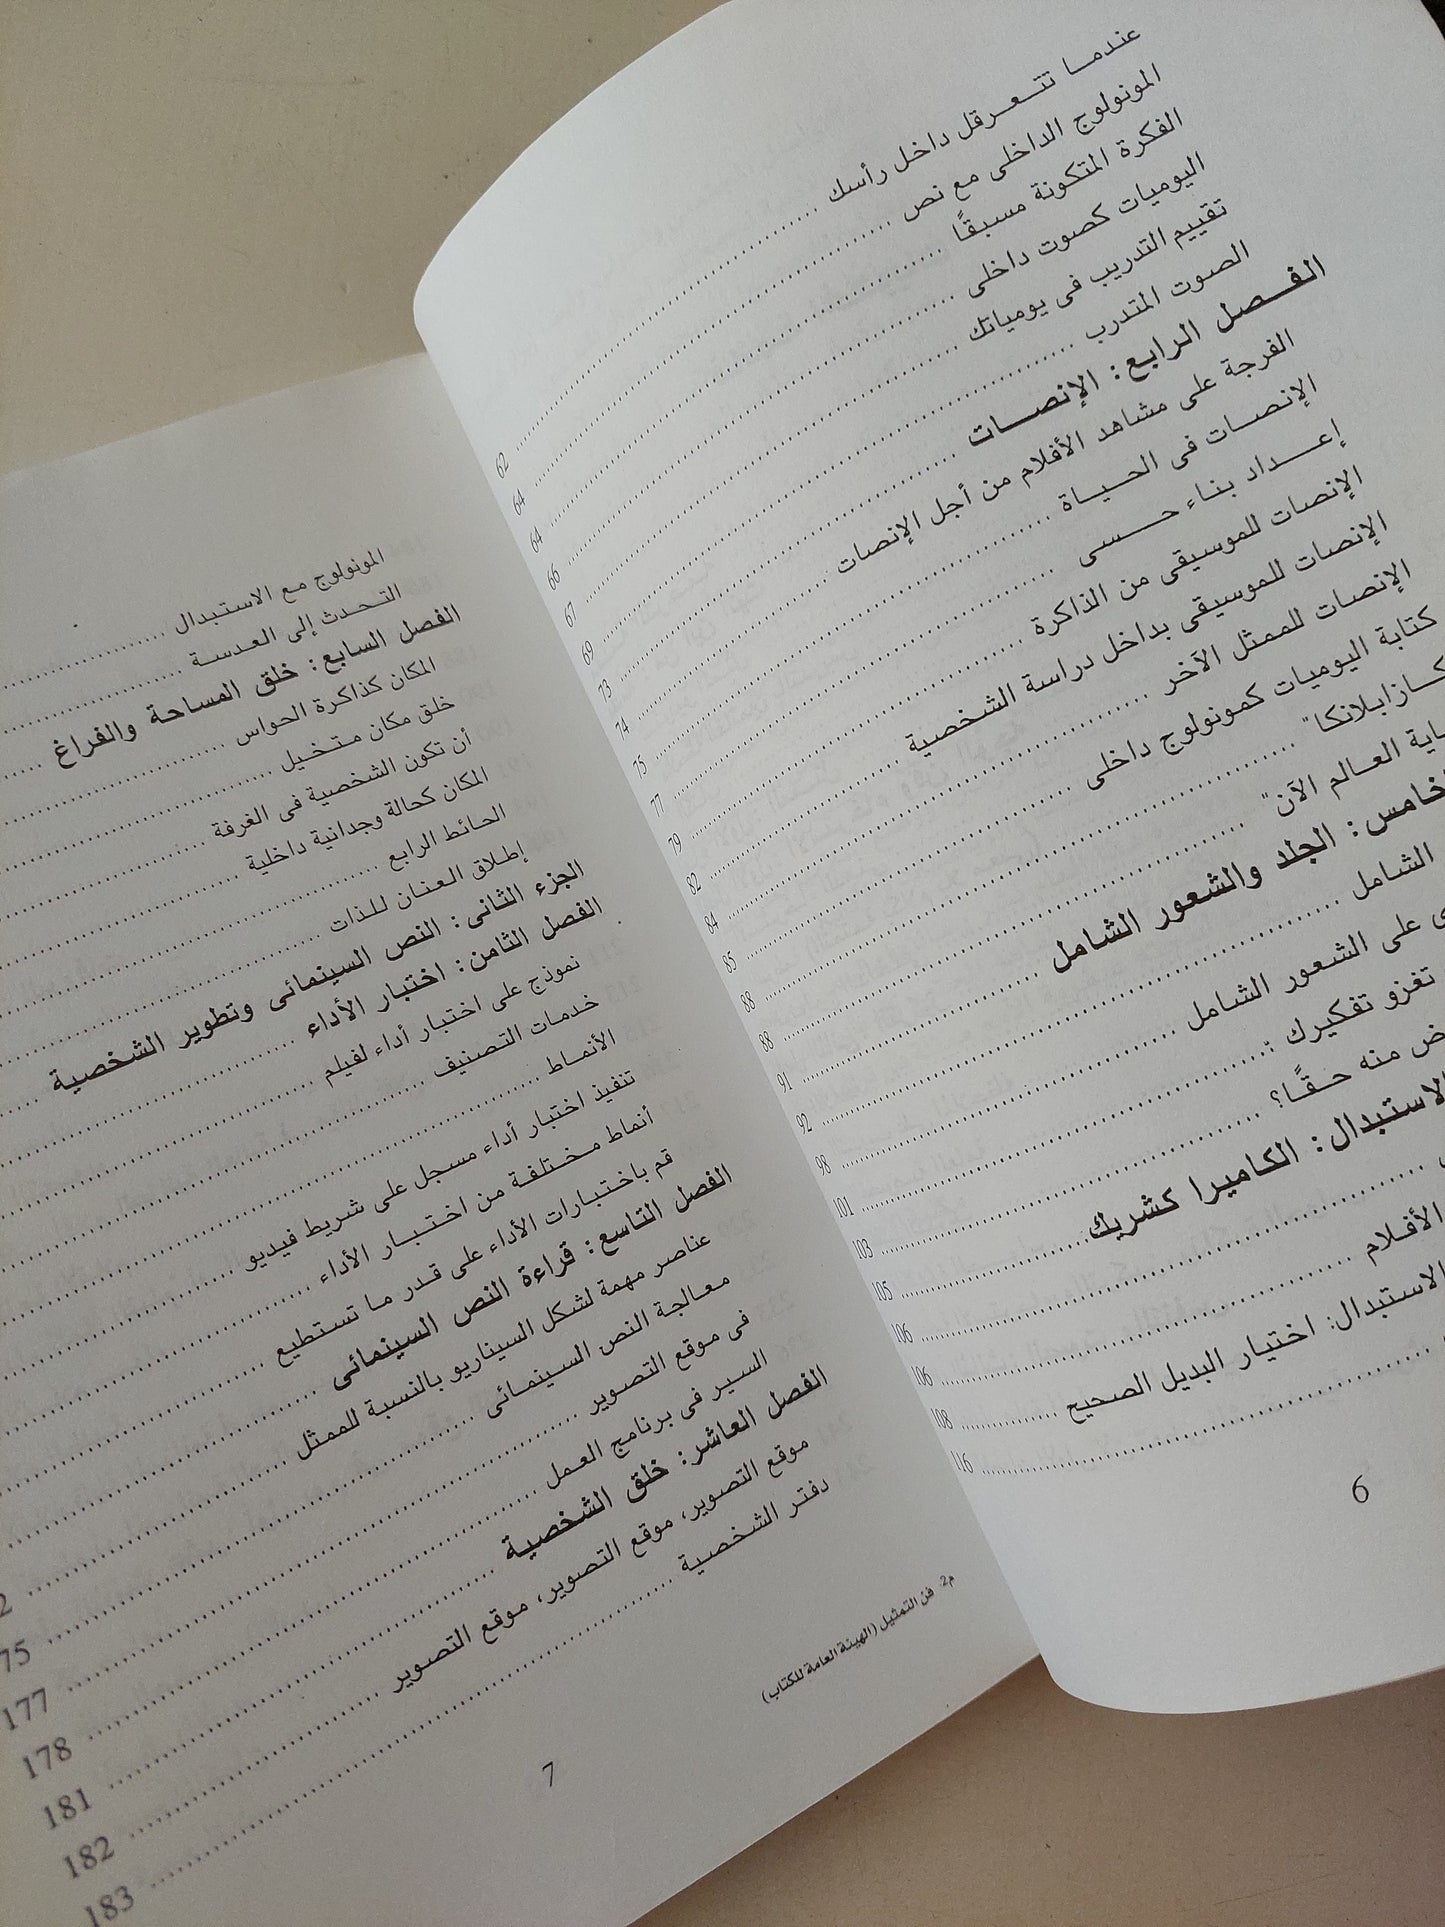 عندما تتعرقل داخل رأسك ........ 62
المونولوج الداخلى مع نص ........ 64
الفكرة المتكونة مسبقًا ........ 64
اليوميات كصوت داخلى ........ 66
تقييم التدريب فى يومياتك ........ 67
الصوت المتدرب ........ 69
الفصل الرابع: الإنصات ........ 73
الفرجة على مشاهد الأفلام من أجل الإنصات ........ 74
الإنصات فى الحياة ........ 75
إعداد بناء حسى ........ 77
الإنصات للموسيقى من الذاكرة ........ 79
الإنصات للموسيقى بداخل دراسة الشخصية ........ 82
الإنصات للممثل الآخر ........ 84
كتابة اليوميات كمونولوج داخلى ........ 85
كازابلانكا" ........ 88
العالم الآن" ........ 88
خامس: الجلد والشعور الشامل ........ 91
الشامل ........ 92
على الشعور الشامل ........ 98
تغزو تفكيرك ........ 101
منه حقًا؟ ........ 103
الاستبدال: الكاميرا كشريك ........ 105
........ 106
الأفلام ........ 106
الاستبدال: اختيار البديل الصحيح ........ 108
........ 116
6
المونولوج مع الاستبدال ........
التحدث إلى العدسة ........
الفصل السابع: خلق المساحة والفراغ ........
المكان كذاكرة الحواس ........
خلق مكان متخيل ........
أن تكون الشخصية فى الغرفة ........
المكان كحالة وجدانية داخلية ........
الحائط الرابع ........
إطلاق العنان للذات ........
الجزء الثانى: النص السينمائى وتطوير الشخصية ........
الفصل الثامن: اختبار الأداء ........
نموذج على اختبار أداء لفيلم ........
خدمات التصنيف ........
الأنماط ........
تنفيذ اختبار أداء مسجل على شريط فيديو ........
أنماط مختلفة من اختبار الأداء ........
قم باختبارات الأداء على قدر ما تستطيع ........
الفصل التاسع: قراءة النص السينمائى ........
عناصر مهمة لشكل السيناريو بالنسبة للممثل ........ 2
معالجة النص السينمائى ........ 75
فى موقع التصوير ........ 177
السير فى برنامج العمل ........ 178
الفصل العاشر: خلق الشخصية ........ 181
موقع التصوير، موقع التصوير، موقع التصوير ........ 182
دفتر الشخصية ........ 183
م2 فن التمثيل (الهيئة العامة للكتاب)
7